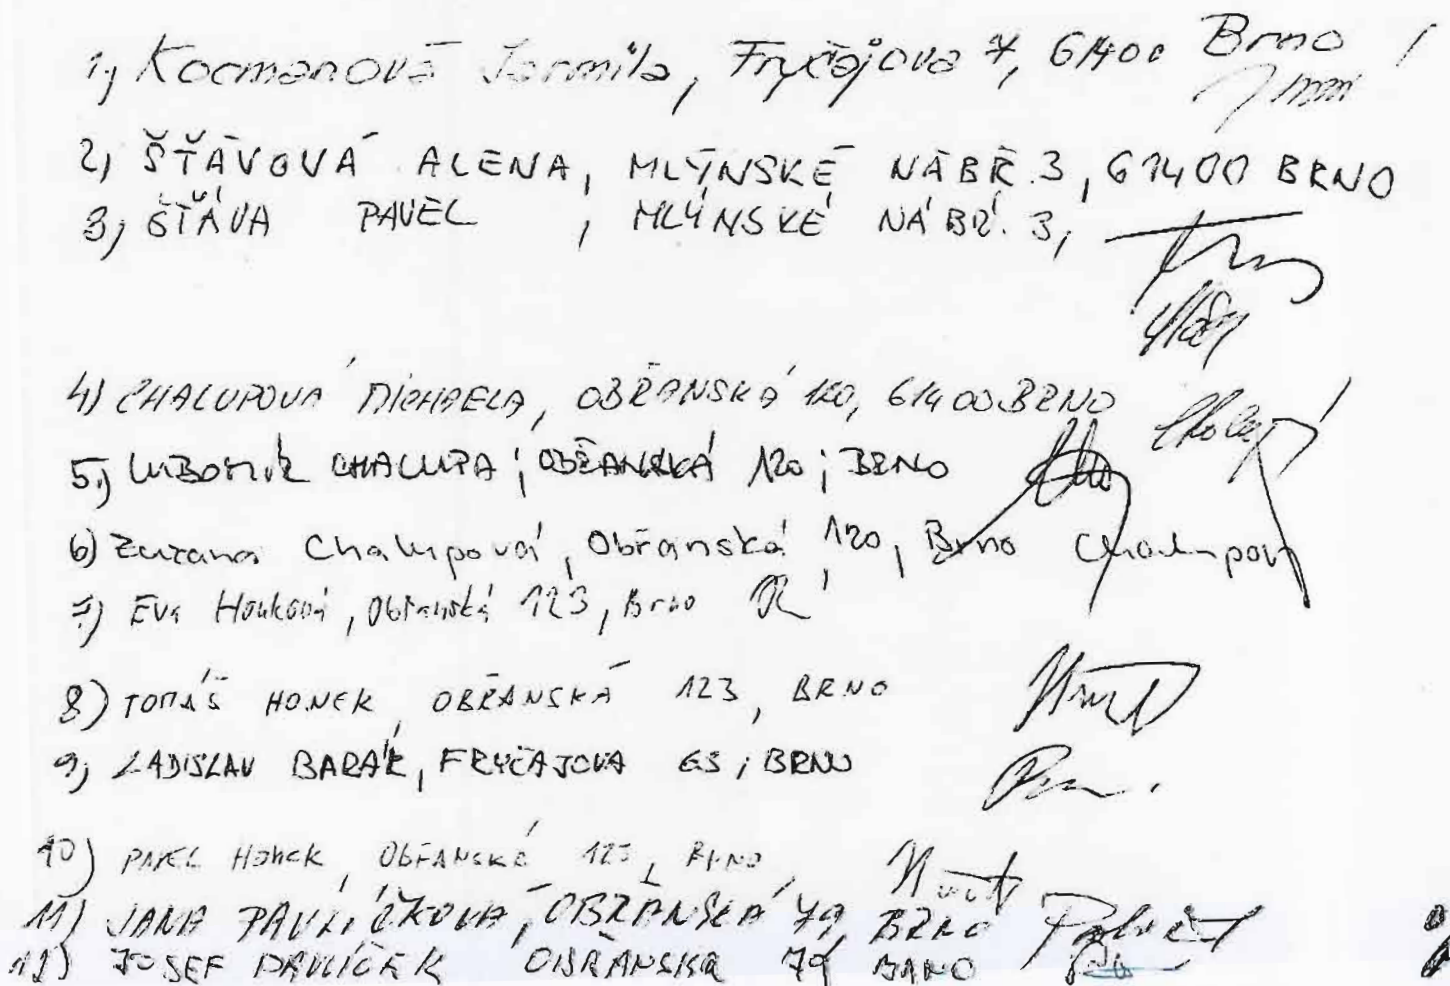 1, Kocmanová Jarmila, Fryčajova 7, 61400 Brno
2, ŠŤÁVOVÁ ALENA, MLÝNSKÉ NÁBŘ. 3, 61400 BRNO
3, ŠŤÁVA PAVEL , MLÝNSKÉ NÁBŘ. 3,
4) CHALUPOVÁ MICHAELA, OBŘANSKÁ 120, 61400 BRNO
5.) LUBOMÍR CHALUPA ; OBŘANSKÁ 120 ; BRNO
6) Zuzana Chalupová, Obřanská 120, Brno Chalupová
7.) Eva Honková, Obřanská 123, Brno
8) TOMÁŠ HONEK, OBŘANSKÁ 123, BRNO
9, LADISLAV BARÁK, FRYČAJOVA 63 ; BRNO
10) PAVEL HONEK, OBŘANSKÁ 123, BRNO,
11) JANA PAVLÍČKOVÁ, OBŘANSKÁ 79, BRNO
12) JOSEF PAVLÍČEK OBŘANSKÁ 79 BRNO